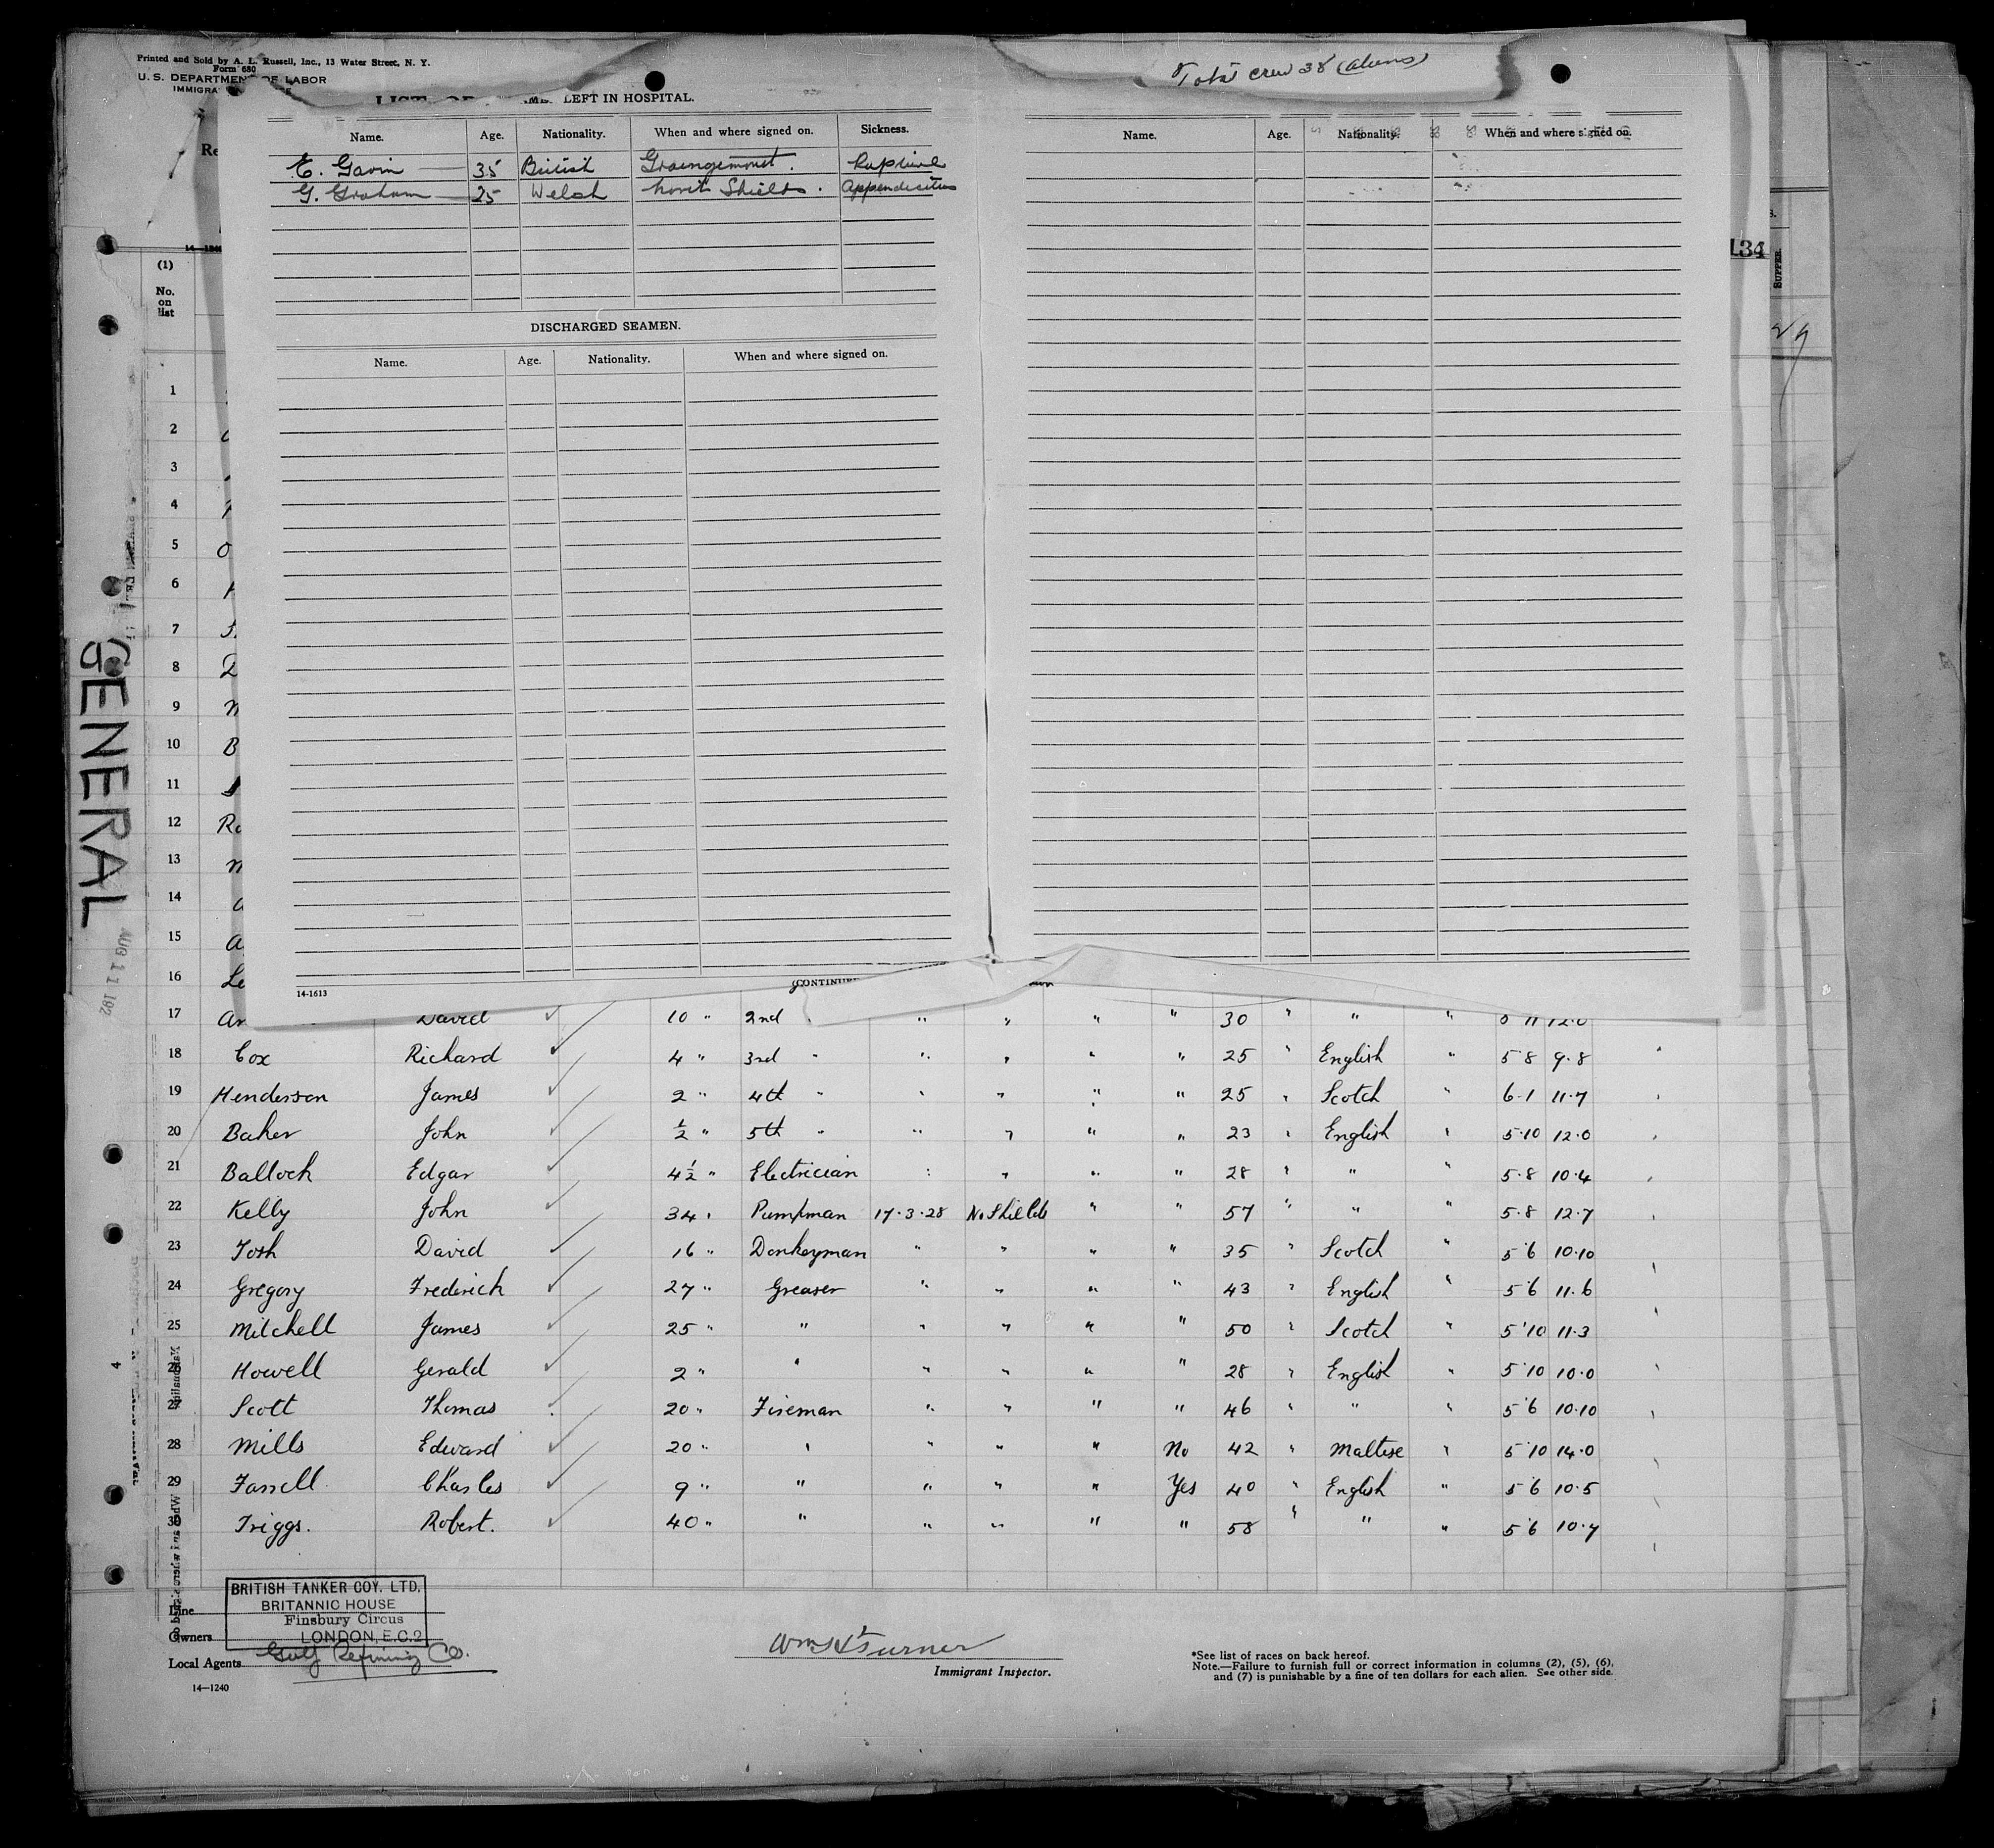 Printed and Sold by A. L. Russell, Inc., 13 Water Street, N. Y.
Form 680
U. S. DEPARTMENT OF LABOR
LEFT IN HOSPITAL.
Total crew 38 (aliens)
Name. Age. Nationality. When and where signed on. Sickness.
E. Gavin 35 British Graingemout. Rupture
G. Graham 25 Welsh North Shields. Appendicitus
DISCHARGED SEAMEN.
Name. Age. Nationality. When and where signed on.
Name. Age. Nationality. When and where signed on.
14-1613
(1)
No.
on
list
134
SUPPER.
GENERAL
AUG 11 192
1
2
3
4
5
6
7
8
9
10
11
12
13
14
15
16
17 David 10 " 2nd " " " " 30 " " "
18 Cox Richard 4 " 3rd " " " " " 25 " English " 5·8 9·8
19 Henderson James 2 " 4th " " " " " 25 " Scotch " 6·1 11·7
20 Baker John ½ " 5th " " " " " 23 " English " 5·10 12·0
21 Ballock Edgar 4½ " Electrician " " " " 28 " " " 5·8 10·4
22 Kelly John 34 " Pumpman 17·3·28 No Shields " " 57 " " " 5·8 12·7
23 Tosh David 16 " Donkeyman " " " " 35 " Scotch " 5·6 10·10
24 Gregory Frederick 27 " Greaser " " " " 43 " English " 5·6 11·6
25 Mitchell James 25 " " " " " " 50 " Scotch " 5·10 11·3
26 Howell Gerald 2 " " " " " " 28 " English " 5·10 10·0
27 Scott Thomas 20 " Fireman " " " " 46 " " " 5·6 10·10
28 Mills Edward 20 " " " " " No 42 " Maltese " 5·10 14·0
29 Farrell Charles 9 " " " " " Yes 40 " English " 5·6 10·5
30 Triggs. Robert. 40 " " " " " " 58 " " " 5·6 10·7
BRITISH TANKER COY. LTD.
BRITANNIC HOUSE
Line Finsbury Circus
Owners LONDON, E.C.2
Local Agents Gulf Refining Co.
14—1240
Turner
Immigrant Inspector.
*See list of races on back hereof.
Note.—Failure to furnish full or correct information in columns (2), (5), (6),
and (7) is punishable by a fine of ten dollars for each alien. See other side.